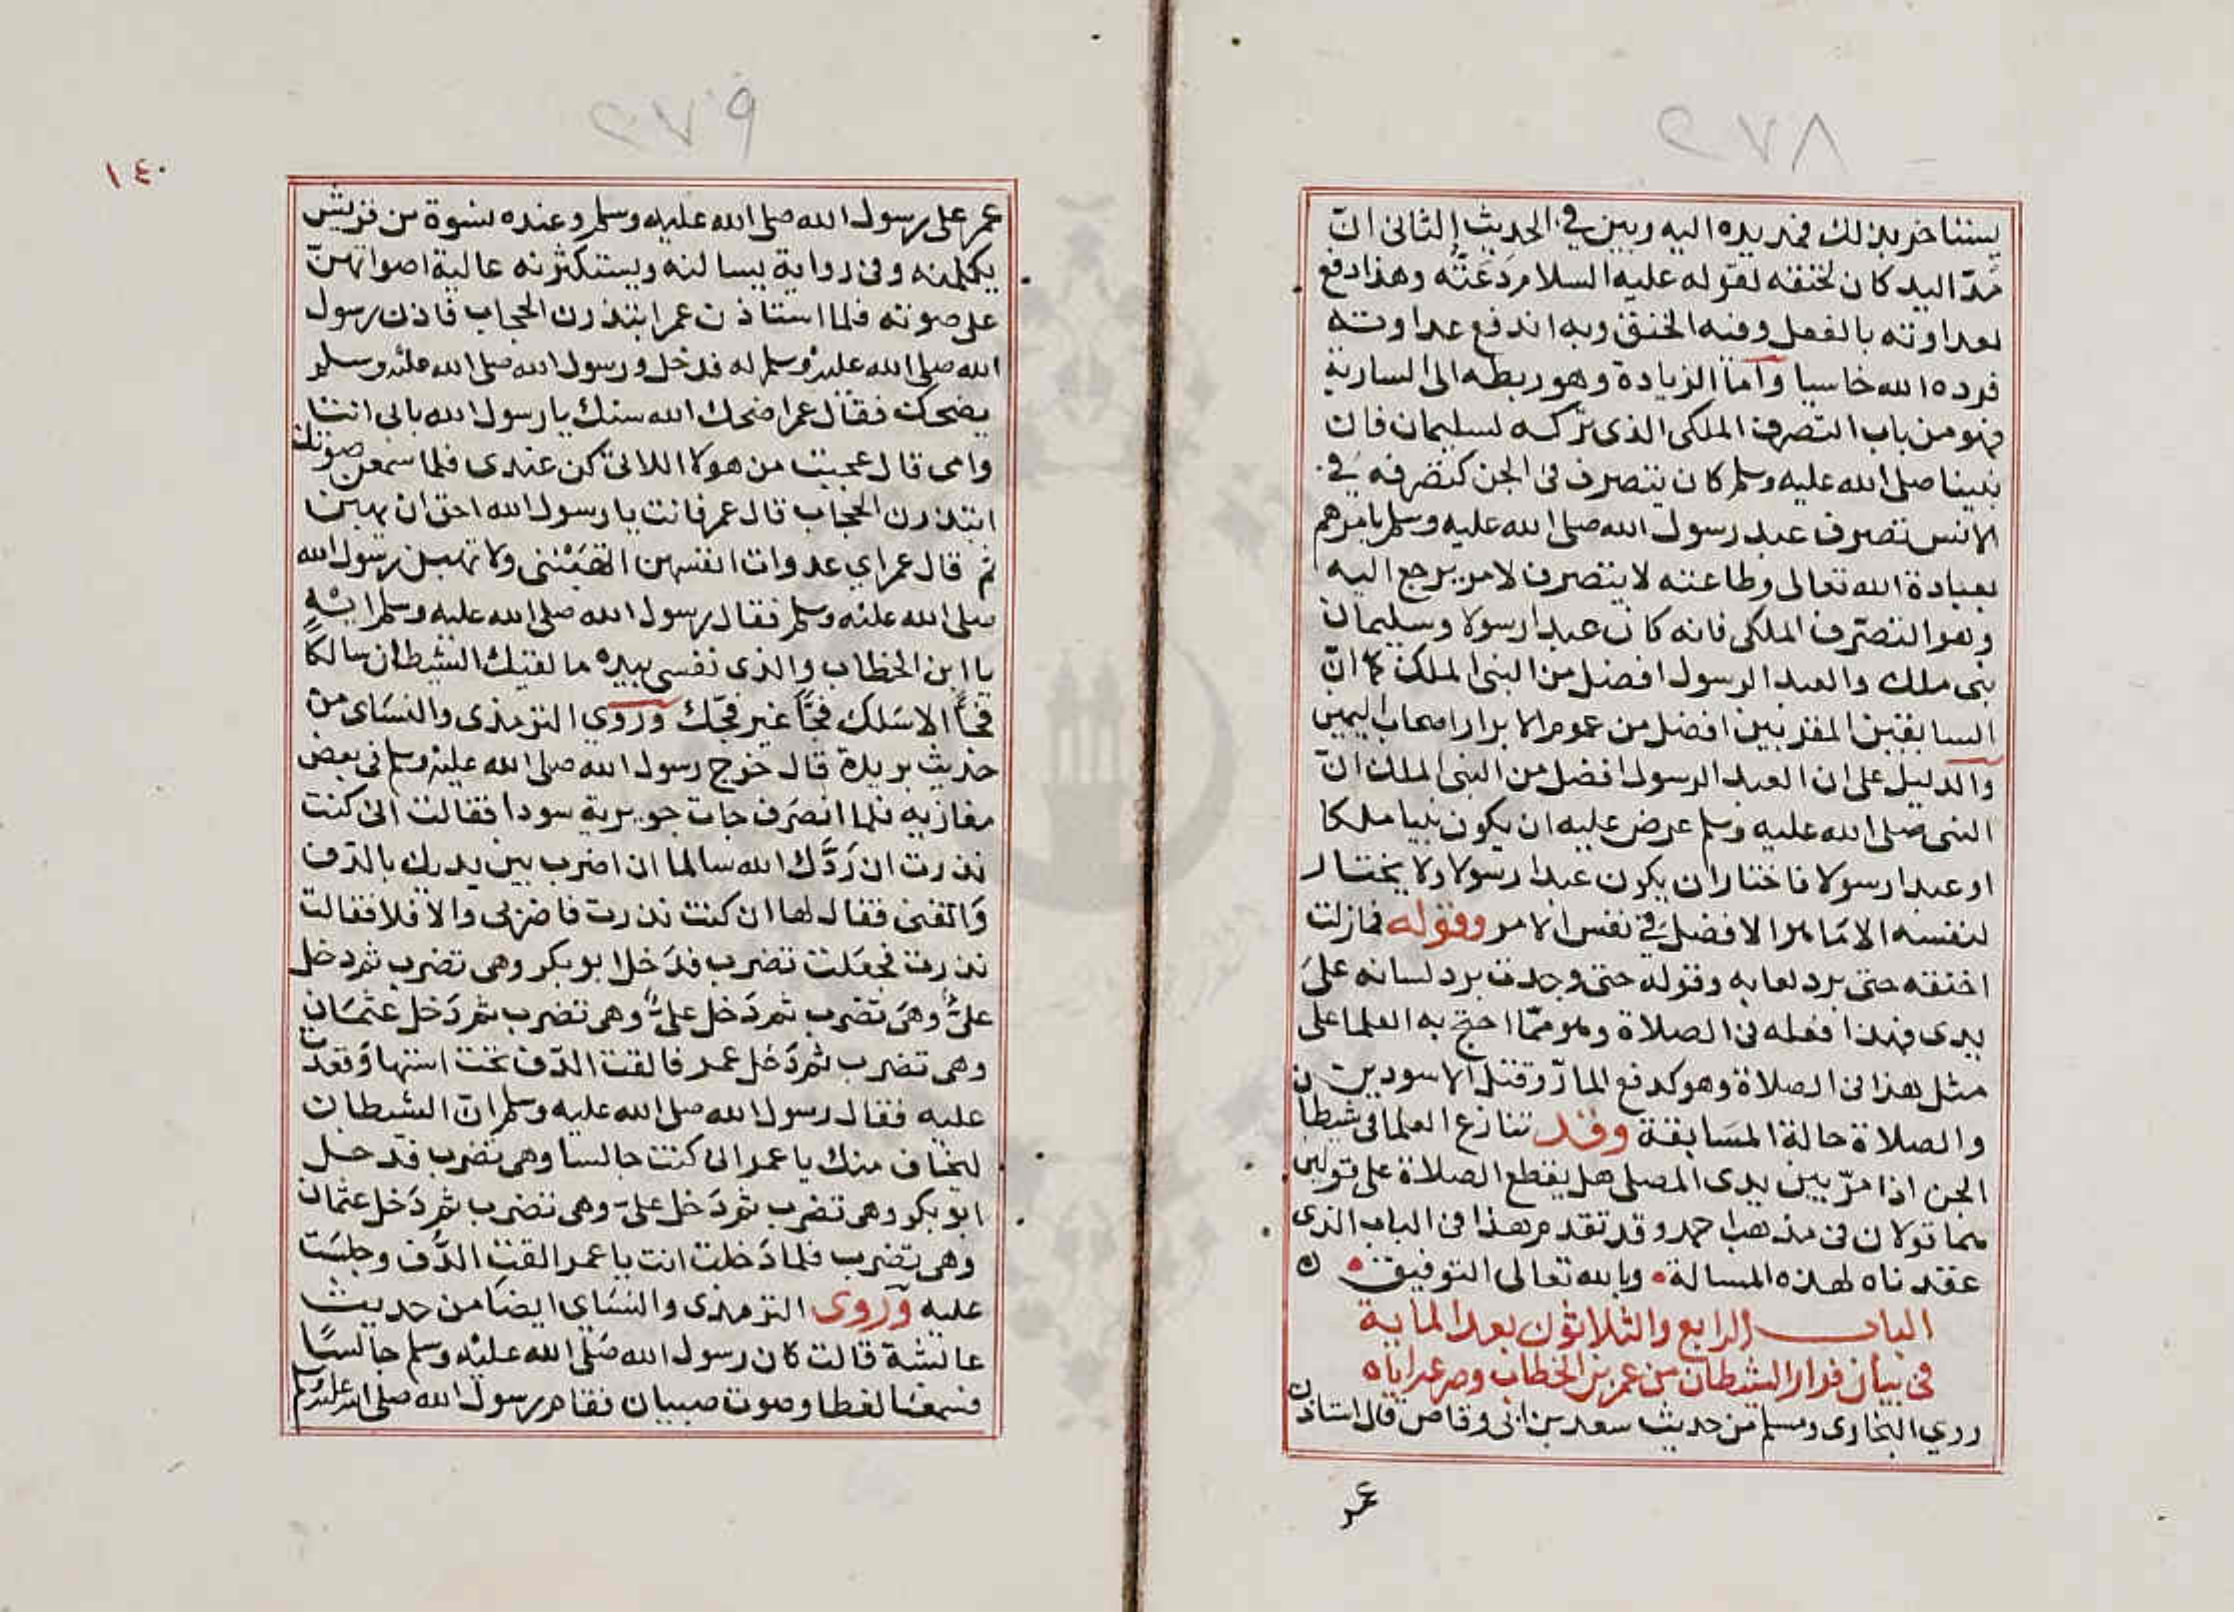 ٢٧٨
يستاخر بذلك فمد يده اليه وبين في الحديث الثاني انّ
مَدّ اليد كان لخنقه لقوله عليه السلام دَعَتُّه وهذا دفع
لعداوته بالفعل وفنه الخنق وبه اندفع عداوته
فرده الله خاسيا وآما الزيادة وهو ربطه الى السارية
فهو من باب التصرف الملكي الذي تركه لسليمان فان
نبينا صلى الله عليه وسلم كان يتصرف في الجن كتصرفه في
الانس تصرف عبد رسول الله صلى الله عليه وسلم يامرهم
بعبادة الله تعالى وطاعته لا يتصرف لامر يرجع اليه
وهو التصرّف الملكي فانه كان عبدا رسولا وسليمان
نبي ملك والعبد الرسول افضل من النبي الملك كما انّ
السابقين المقربين افضل من عموم الابرار اصحاب اليمين
والدليل على ان العبد الرسول افضل من النبي الملك انّ
النبي صلى الله عليه وسلم عرض عليه ان يكون نبيا ملكا
او عبدا رسولا فاختار ان يكون عبدا رسولا ولا يختار
لنفسه الا ما هو الافضل في نفس الامر وقوله فمازلت
اخنقه حتى برد لعابه وقوله حتى وجدت برد لسانه على
يدى فهذا فعله في الصلاة وهو ممّا احتج به العلما على
مثل هذا في الصلاة وهو كدفع المارّ وقتل الاسودين
والصلاة حالة المسَابقة وقد تنازع العلما في شيطان
الجن اذا مرّ بين يدى المصلى هل يقطع الصلاة على قولين
هما قولان في مذهب احمد وقد تقدم هذا في الباب الذي
عقدناه لهذه المسالة وبالله تعالى التوفيق ه
الباب الرابع والثلاثون بعد الماية
في بيان فرار الشيطان من عمر بن الخطاب وصرعه اياه
روي البخارى ومسلم من حديث سعد بن ابي وقاص قال استاذن
عمر
٢٧٩
١٤٠
عمر على رسول الله صلى الله عليه وسلم وعنده نسوة من قريش
يكلمنه وفي رواية يسالنه ويستكثرنه عالية اصواتهنّ
على صوته فلما استاذن عمر ابتدرن الحجاب فاذن رسول
الله صلى الله عليه وسلم له فدخل ورسول الله صلى الله عليه وسلم
يضحك فقال عمر اضحك الله سنك يا رسول الله بابي انت
وامى قال عجبت من هولا اللاتى كن عندى فلما سمعن صوتك
ابتدرن الحجاب قال عمر فانت يا رسول الله احق ان يهبن
ثم قال عمر اي عدوات انفسهن اتهَبْننى ولا تهبن رسول الله
صلى الله عليه وسلم فقال رسول الله صلى الله عليه وسلم ايْهٍ
يا ابن الخطاب والذى نفسي بيده ما لقيك الشيطان سالكا
فجًّا الا سَلك فجًّا غير فجّك وروي الترمذى والنسَاى من
حديث بريدة قال خرج رسول الله صلى الله عليه وسلم في بعض
مغازيه فلما انصَرف جات جويرية سودا فقالت انى كنت
نذرت ان رَدَّك الله سالما ان اضرب بين يديك بالدّف
وَاتغنى فقال لها ان كنت نذرت فاضربى والا فلا فقالت
نذرت فجعَلت تضرب فدَخل ابو بكر وهى تضرب ثم دخل
علىّ وهَى تضرب ثم دَخل علىّ وهى تضرب ثم دَخل عثمَان
وهى تضرب ثم دَخل عمر فالقت الدّف تحت استها وَقعدت
عليه فقال رسول الله صلى الله عليه وسلم انّ الشيطان
ليخاف منك يا عمر انى كنت جالسا وهى تضرب فدخل
ابو بكر وهى تضرب ثم دَخل علىّ وهى تضرب ثم دَخل عثمان
وهى تضرب فلما دَخلت انت يا عمر القت الدُّف وجلسَت
عليه وَروى الترمذى والنسَاي ايضَا من حديث
عايشة قالت كان رسول الله صَلى الله عليْه وسلم جالسًا
فسَمعْنا لغطا وصوت صبيان فقام رسول الله صلى الله عليه وسلم